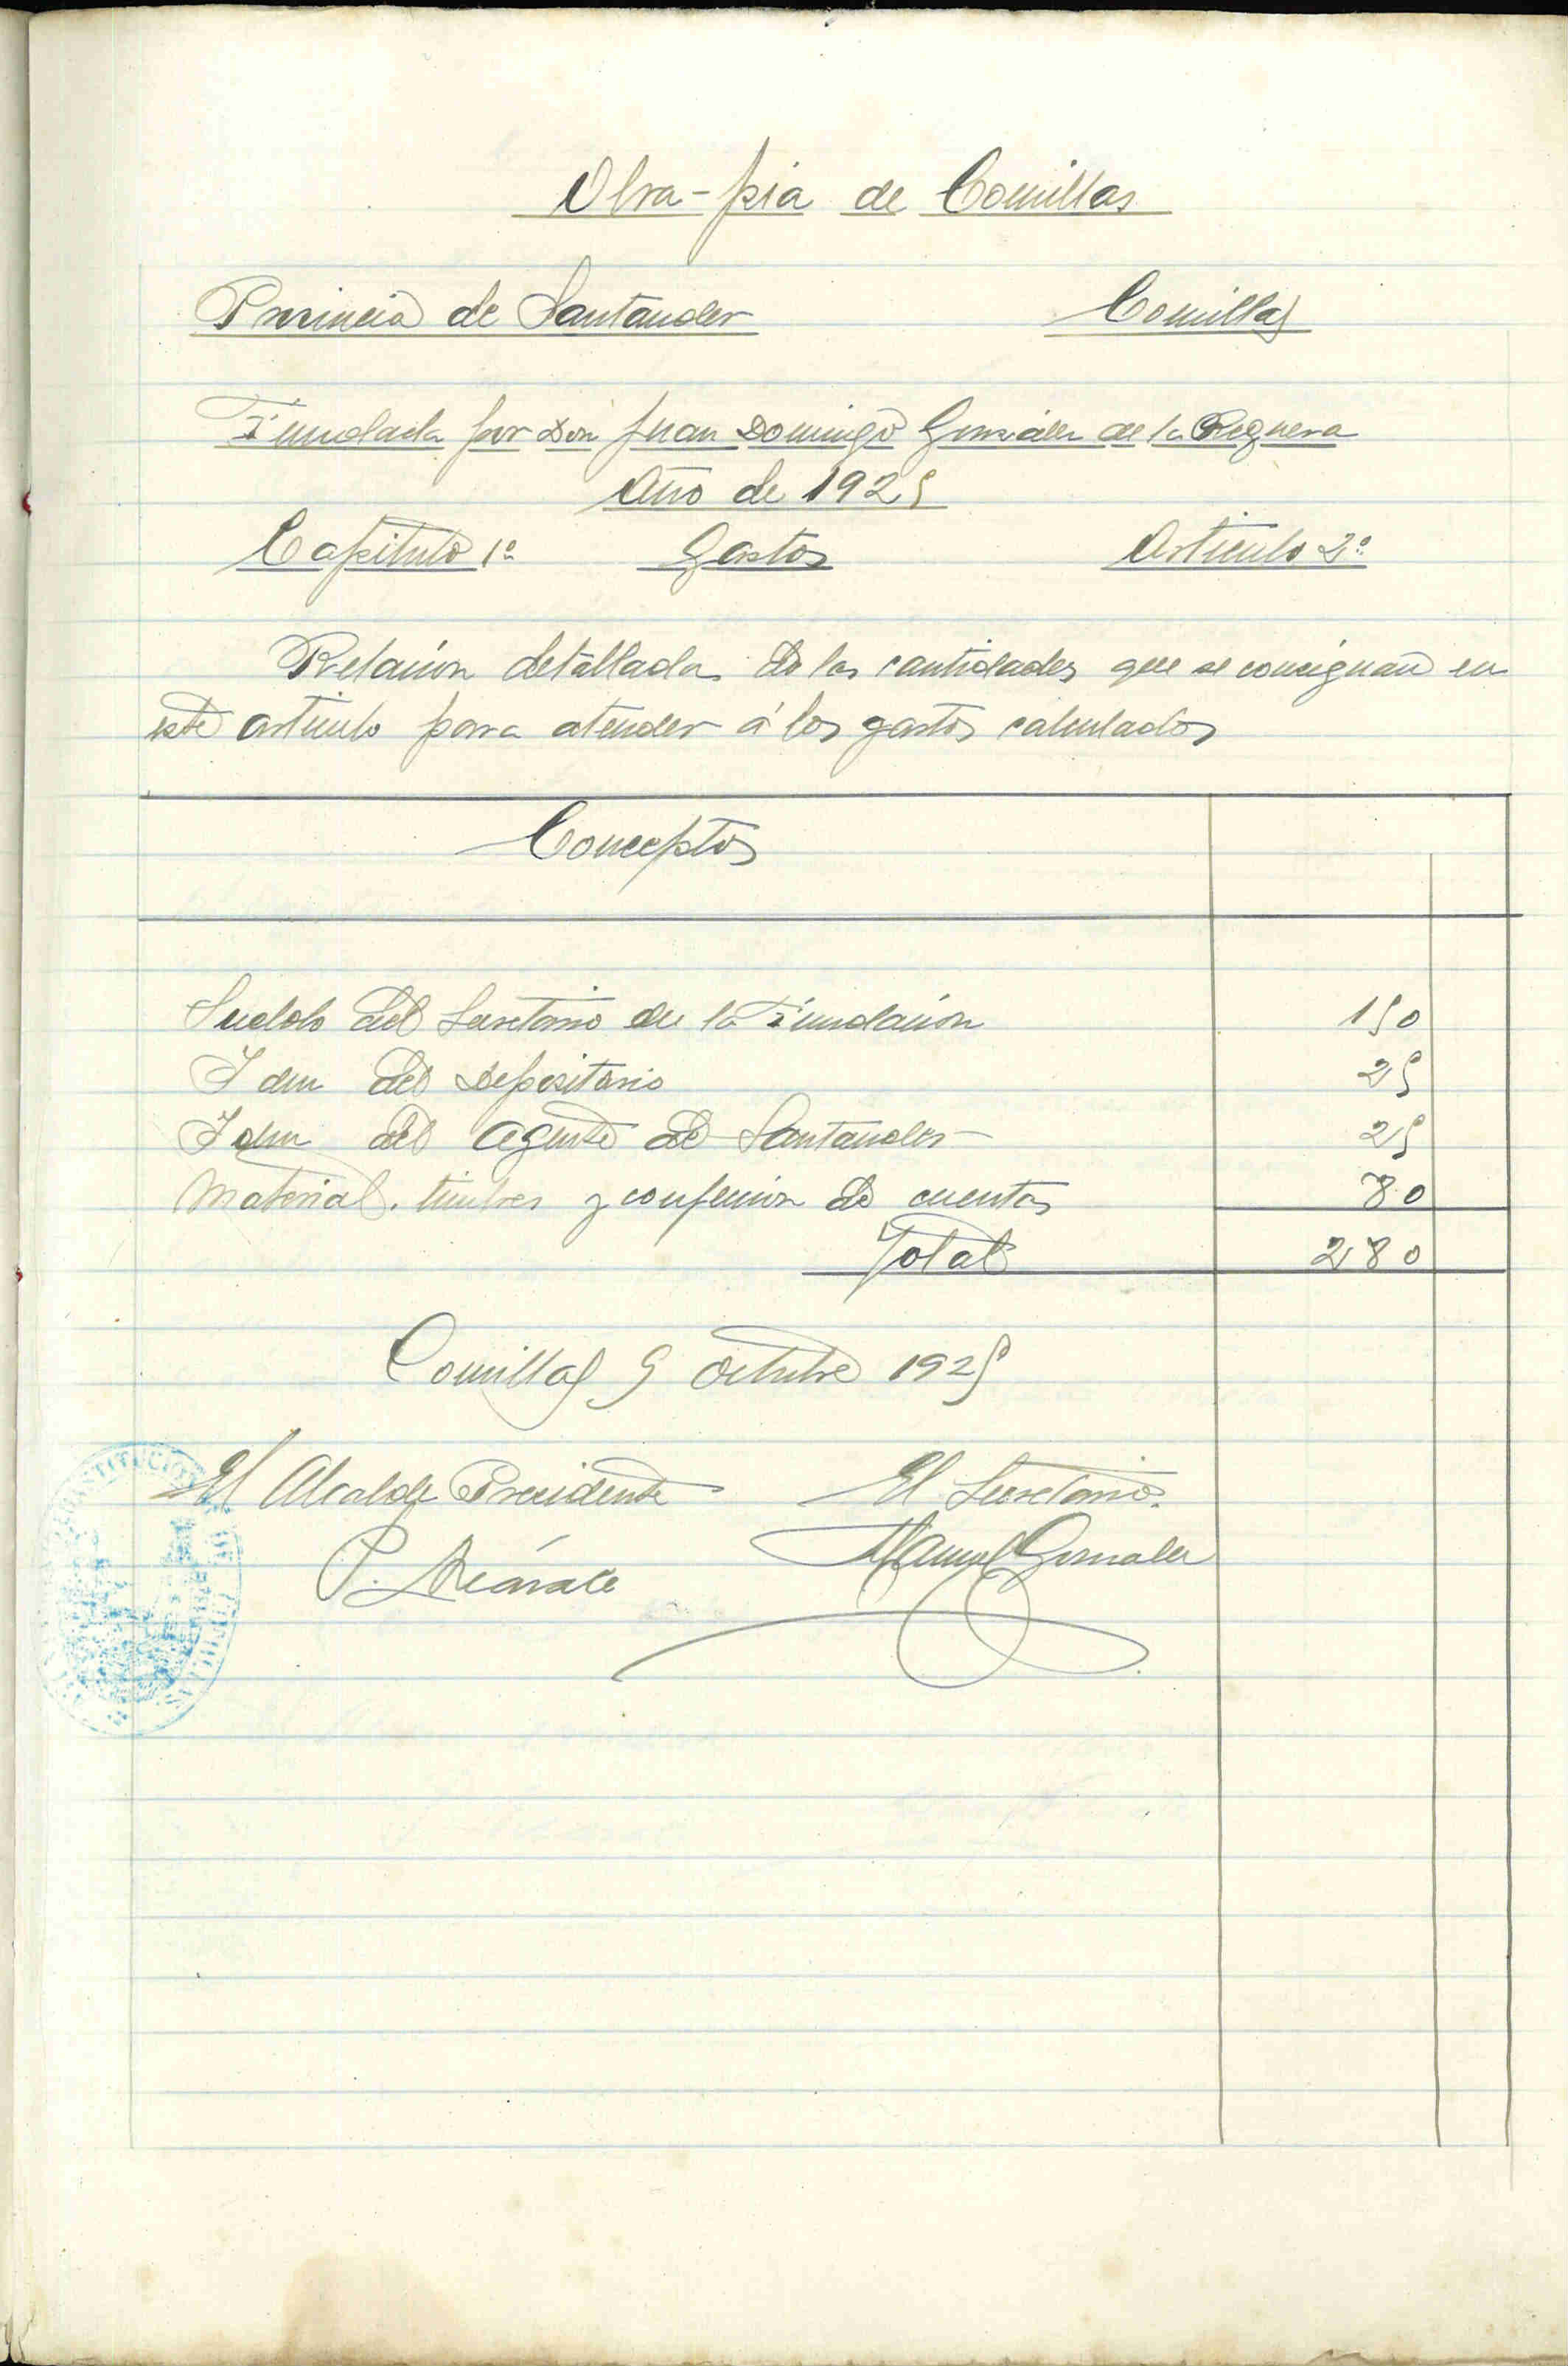 Obra-pia de Comillas
Provincia de Santander Comillas
Fundada por Don Juan Domingo González de la Reguera
Año de 1925
Capitulo 1º Gastos Articulo 2º
Relación detallada de las cantidades que se consignan en
este articulo para atender á los gastos calculados
Conceptos
Sueldo del Secretario de la Fundación 150
Idem del Depositario 25
Idem del agente de Santander 25
Material, timbres y confección de cuentas 80
Total 280
Comillas 9 octubre 1925
El Alcalde Presidente El Secretario.
P. Manuel Gonzalez